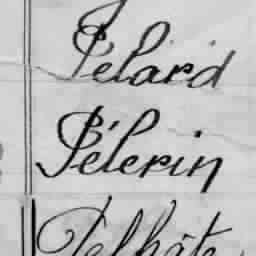 Pelard
Pélerin
Pelhâte